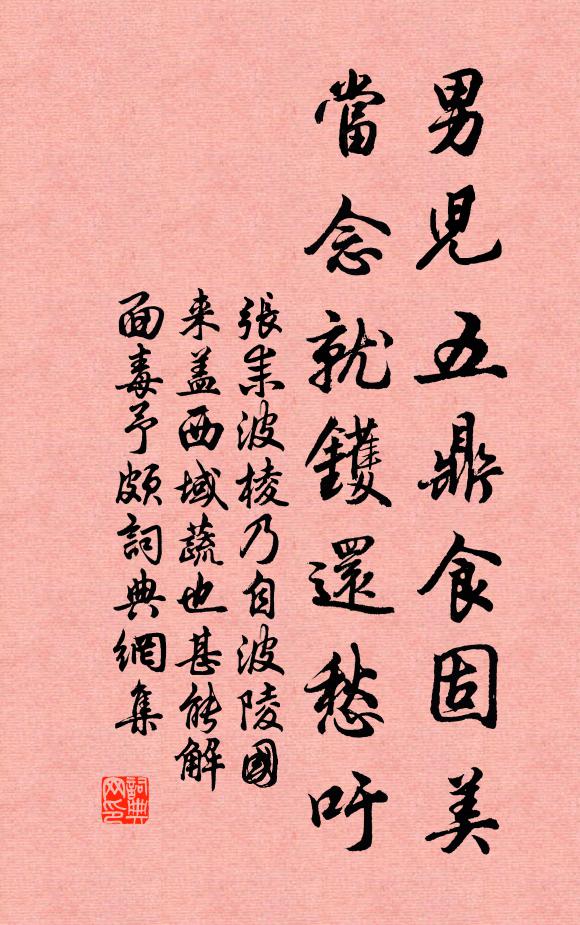 男兒五鼎食固美
當念就鑊還愁吁
張耒波棱乃自波陵國
来盖西域蔬也甚能解
面毒予頗詞典網集
詞典
网印